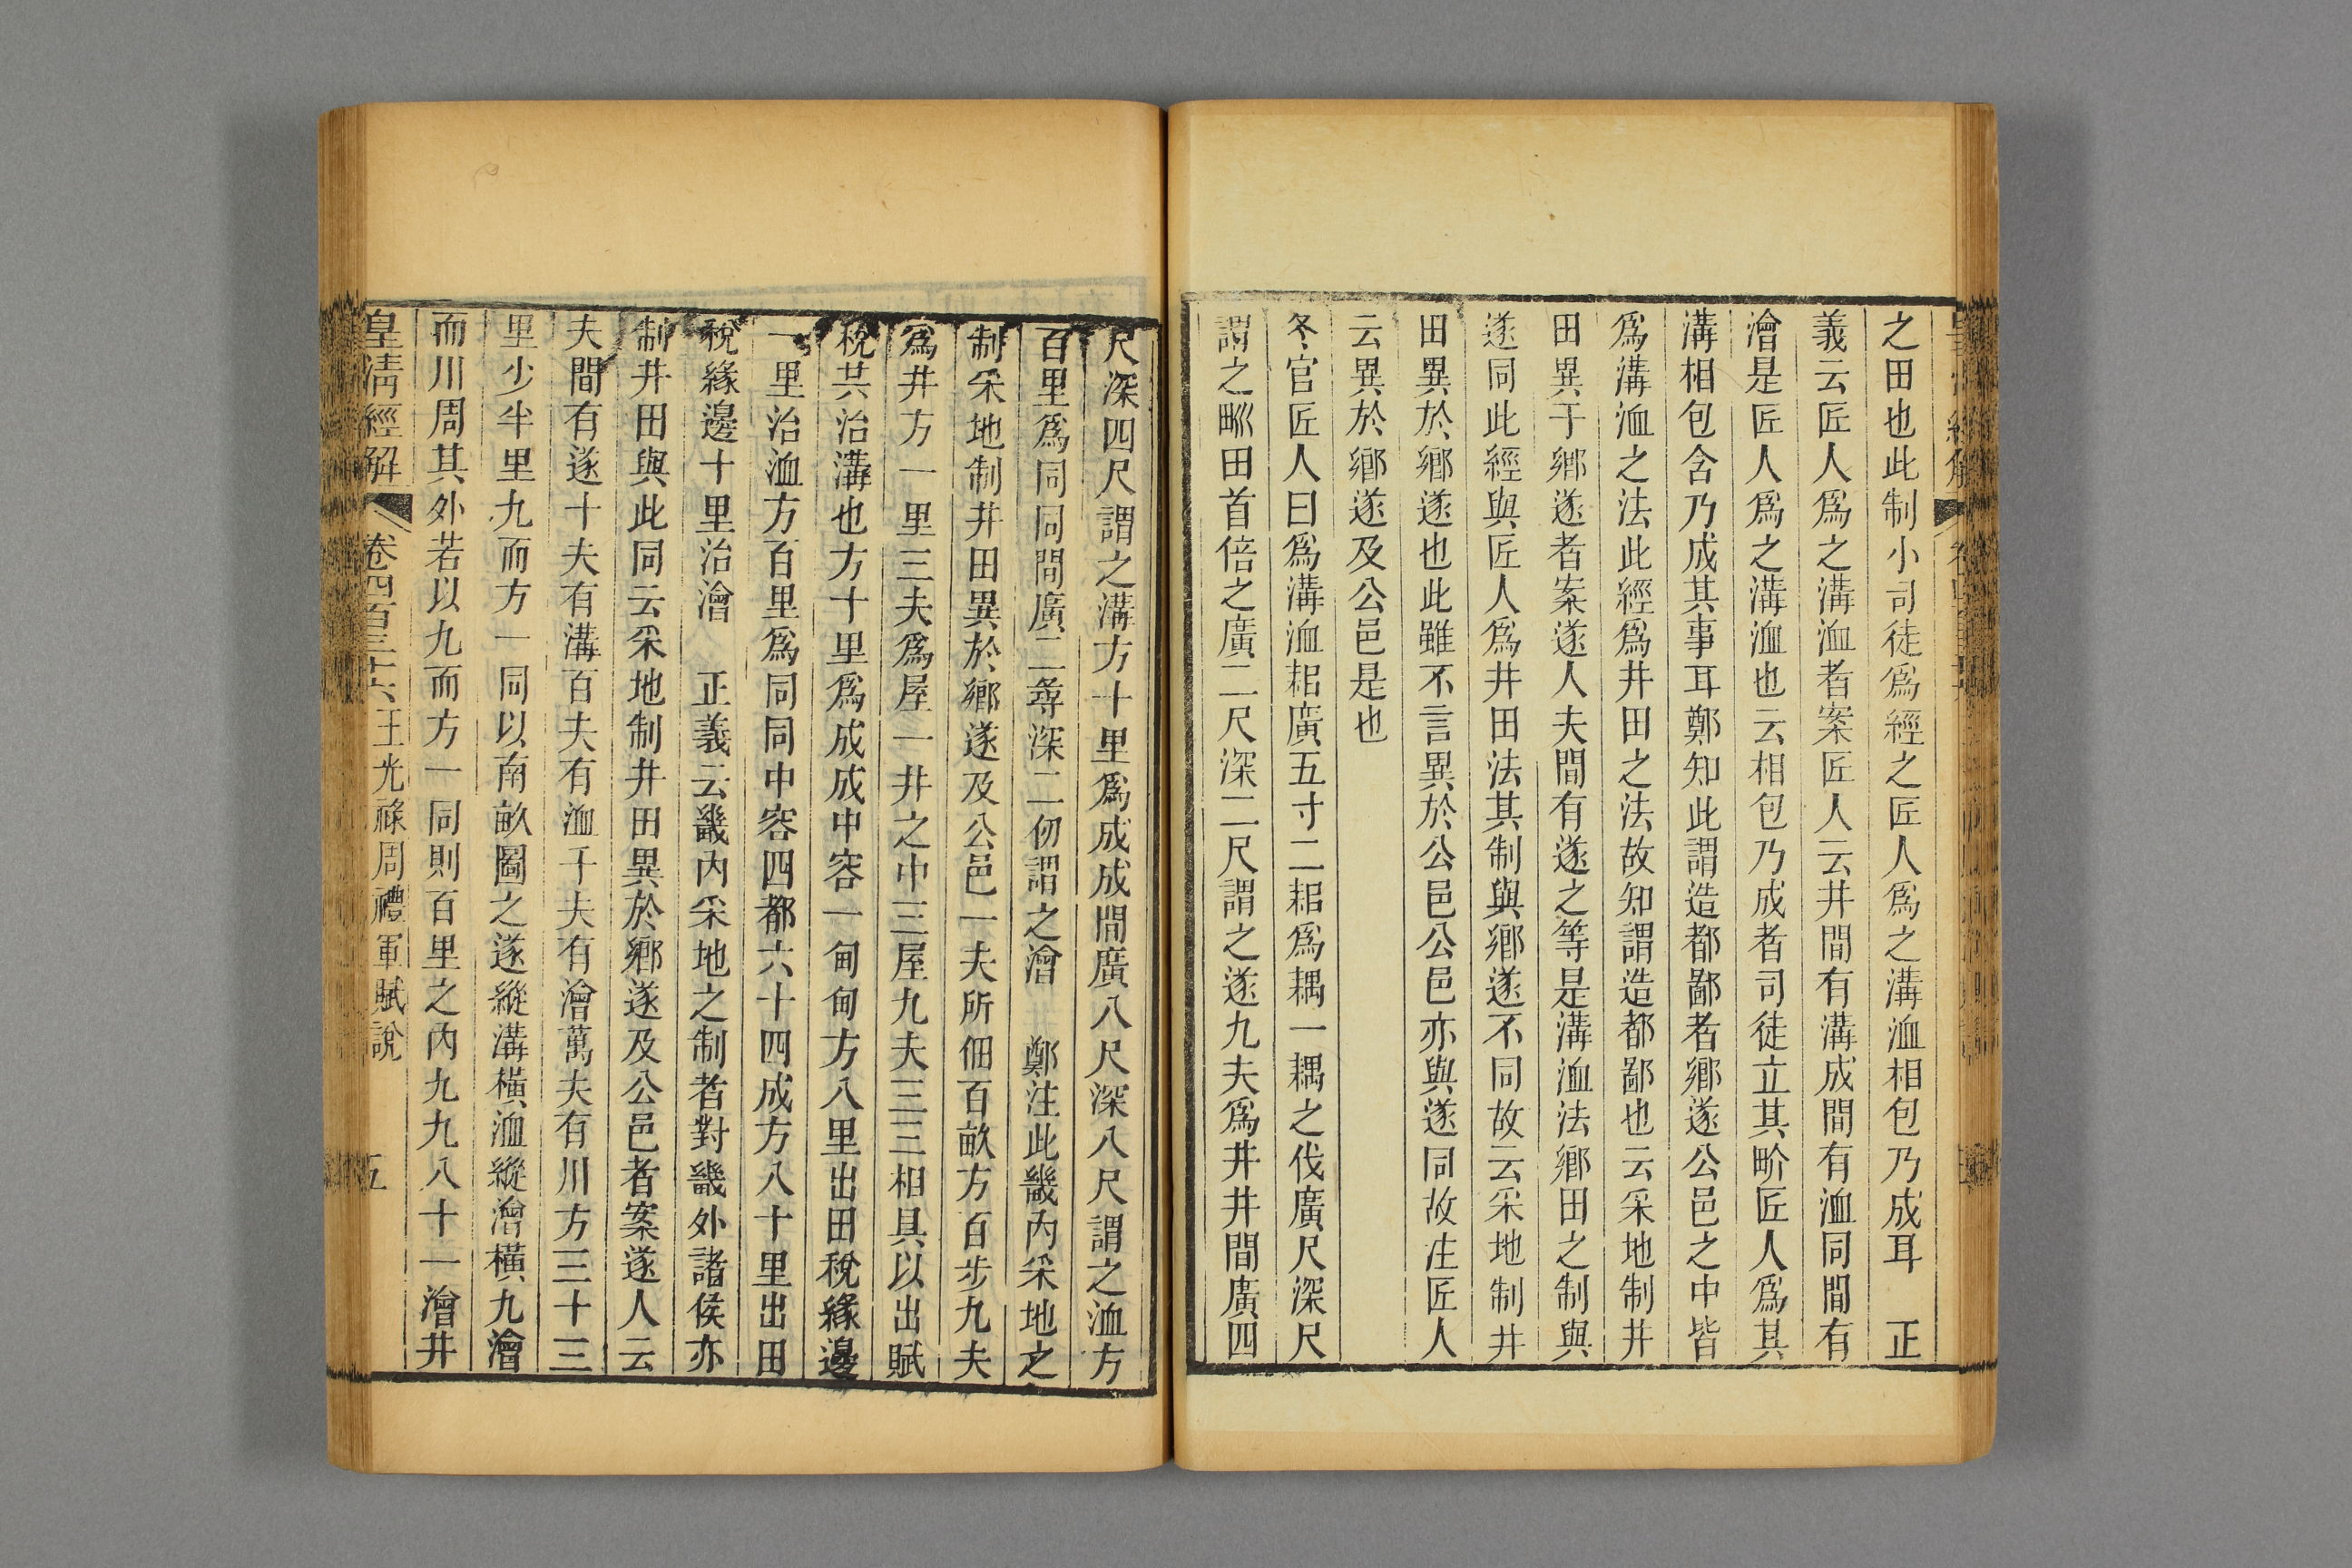 之田也此制小司徒爲經之匠人爲之溝洫相包乃成耳　正
義云匠人爲之溝洫者案匠人云井間有溝成間有洫同間有
澮是匠人爲之溝洫也云相包乃成者司徒立其畍匠人爲其
溝相包含乃成其事耳鄭知此謂造都鄙者鄉遂公邑之中皆
爲溝洫之法此經爲井田之法故知謂造都鄙也云采地制井
田異于鄉遂者案遂人夫間有遂之等是溝洫法鄉田之制與
遂同此經與匠人爲井田法其制與鄉遂不同故云采地制井
田異於鄉遂也此雖不言異於公邑公邑亦與遂同故注匠人
云異於鄉遂及公邑是也
冬官匠人曰爲溝洫耜廣五寸二耜爲耦一耦之伐廣尺深尺
謂之𤰕田首倍之廣二尺深二尺謂之遂九夫爲井井間廣四
尺深四尺謂之溝方十里爲成成間廣八尺深八尺謂之洫方
百里爲同同間廣二尋深二仞謂之澮　鄭注此畿內采地之
制采地制井田異於鄉遂及公邑一夫所佃百畝方百步九夫
爲井方一里三夫爲屋一井之中三屋九夫三三相具以出賦
稅共治溝也方十里爲成成中容一甸甸方八里出田稅緣邊
一里治洫方百里爲同同中容四都六十四成方八十里出田
稅緣邊十里治澮　正義云畿內采地之制者對畿外諸侯亦
制井田與此同云采地制井田異於鄉遂及公邑者案遂人云
夫間有遂十夫有溝百夫有洫千夫有澮萬夫有川方三十三
里少半里九而方一同以南畝圖之遂縱溝橫洫縱澮橫九澮
而川周其外若以九而方一同則百里之內九九八十一澮井
皇清經解　卷四百三十六王光祿周禮軍賦說　五